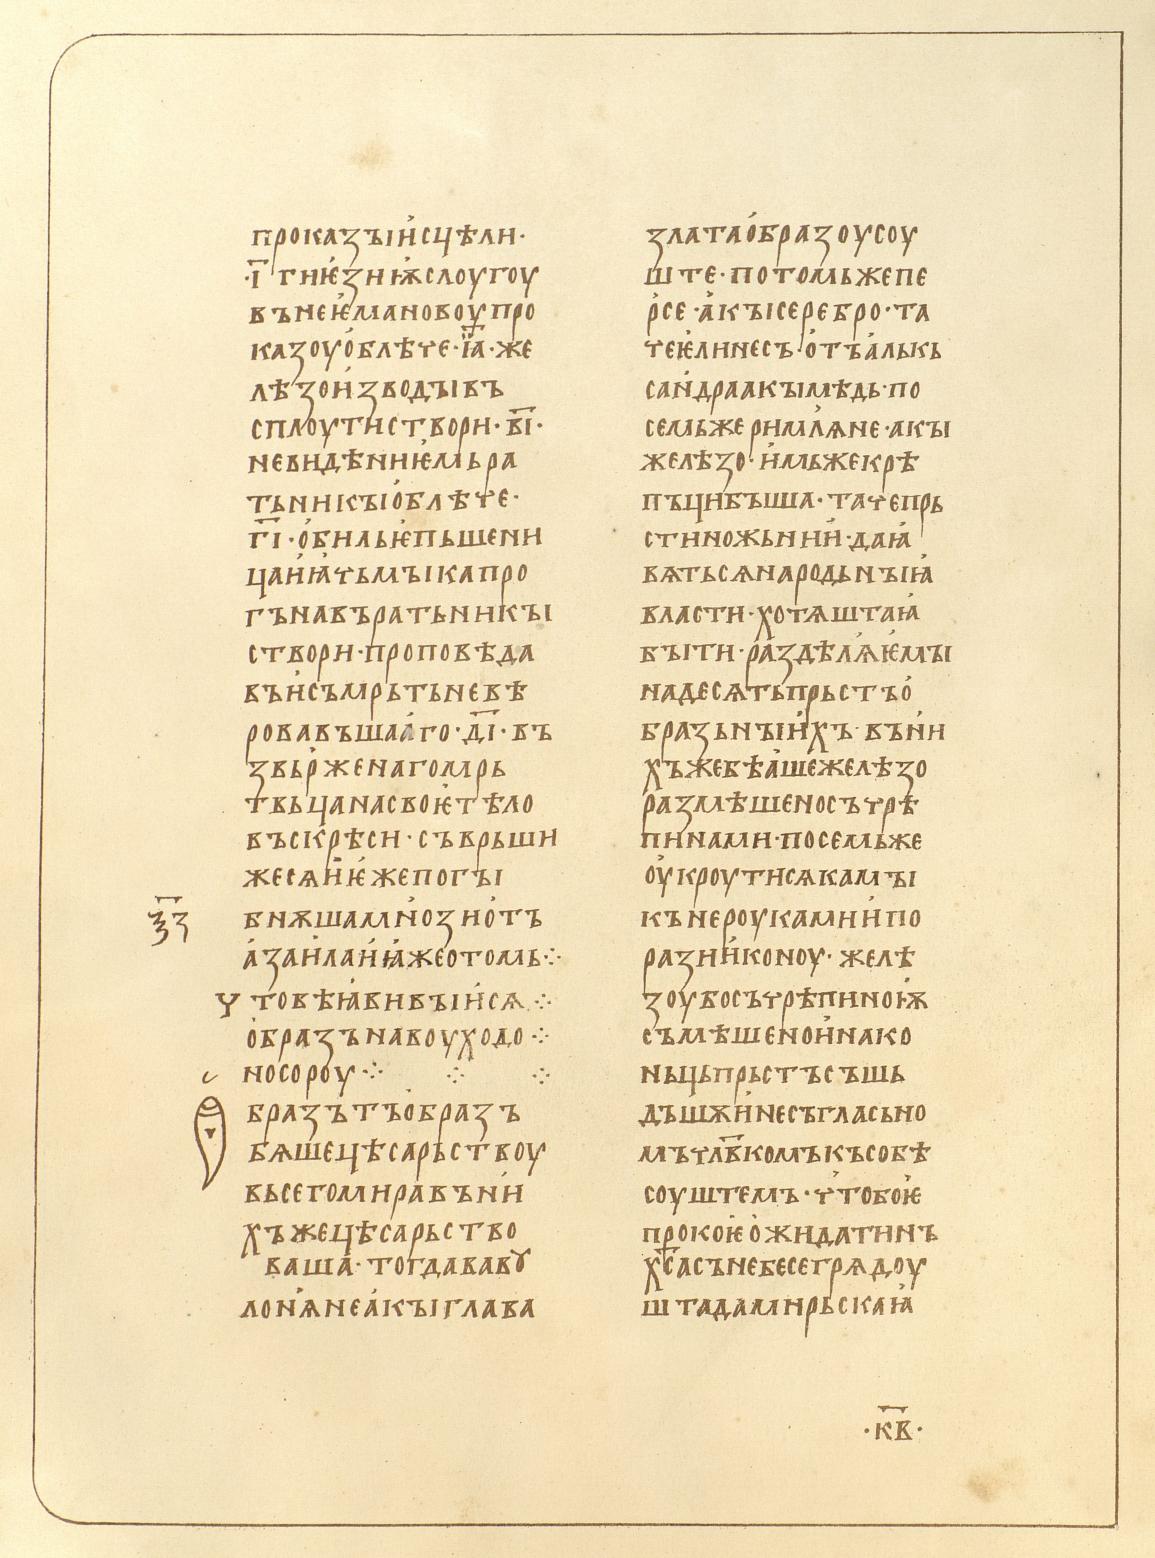 проказꙑисцѣли·
·і҃· гнѥзиѭслоугоу
вънеѥмановоупро
казоуоблѣче·і҃а·же
лѣзоизводꙑвъ
сплоутиствори·в҃і·
невидѣниѥмьра
тьникꙑоблѣче·
г҃і·обильѥпьшени
цаиꙗчьмꙑкапро
гънавъратьникꙑ
створи·проповѣда
въисъмрьтьневѣ
ровавъшааго·д҃і·въ
звьрженагомрь
твьцанасвоѥтѣло
въскрѣси·съврьши
жесяиѥжепогꙑ
ѯ҃з
бнѫшамнозиотъ
азаилаиꙗжеотомь⁘
чтовѣꙗвивꙑися⁘
образънавоуходо⁘
носороу⁘ ⁘ ⁘
О
бразътъобразъ
бѧшецѣсарьствоу
вьсегомиравъни
хъжецѣсарьство
ваша·тогдававꙋ
лонѧнеакꙑглава
златаобразоусоу
ште·потомьжепе
рсе·акꙑсеребро·та
чеѥлинесъ·отъалькь
сандраакꙑмѣдь·по
семьжеримлѧне·акꙑ
желѣзо·имьжекрѣ
пъциБꙑша·тачепрь
стиножьнии·даꙗ
вѧтьсѧнародьнꙑꙗ
власти·хотѧштаꙗ
бꙑти·раздѣлѧѥмꙑ
надесѧтьпрьстъо
бразьнꙑихъ·въни
хъжебѣашежелѣзо
размѣшеносъчрѣ
пинами·посемьже
оукроутисѧкамꙑ
кънероукамниипо
разииконоу·желѣ
зоубосъчрѣпиноѭ
съмѣшеноинако
ньцьпрьстъсъшь
дъшѫинесъгласьно
мъчл҃вкомъкъсобѣ
соуштемъ·чтобоѥ
прокоѥожидатинъ
х҃сасънебесегрѧдоу
штадамирьскаꙗ
·к҃в·